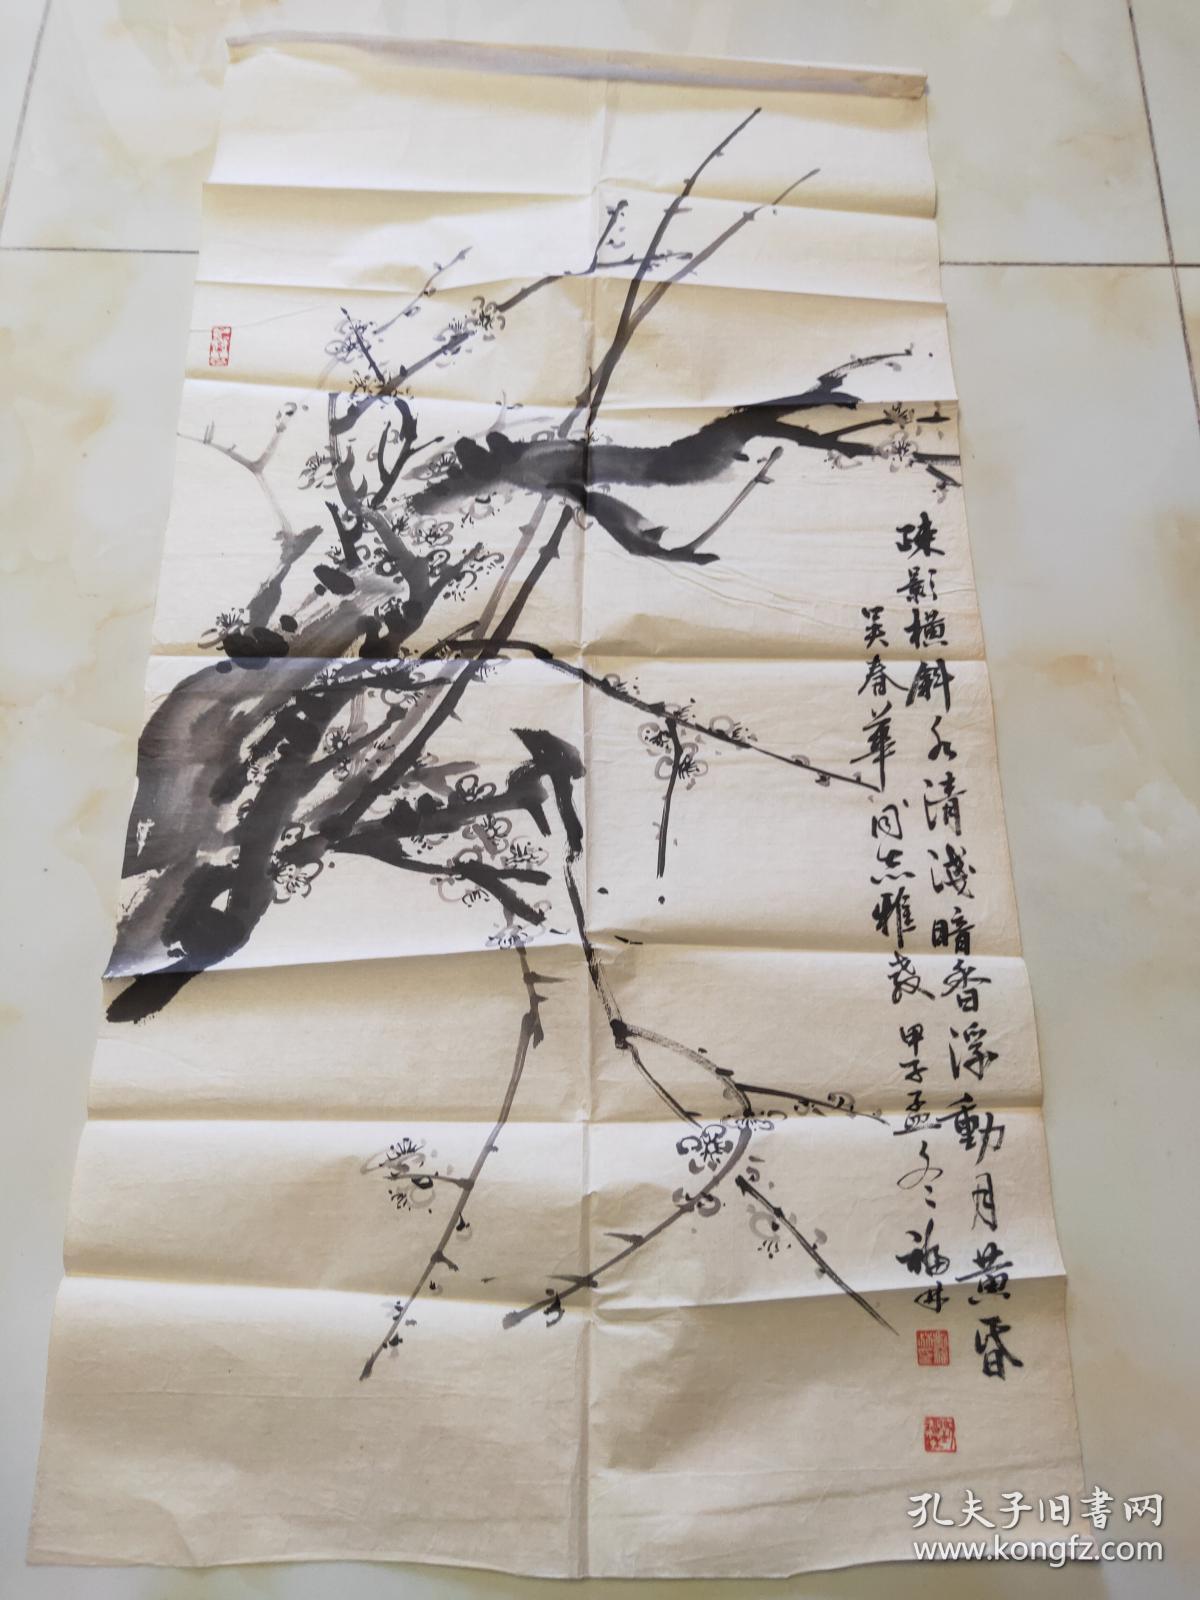 疎影橫斜水清淺暗香浮動月黃昏
吴春華同志雅教 甲子孟冬福林
孔夫子旧书网
www.kongfz.com